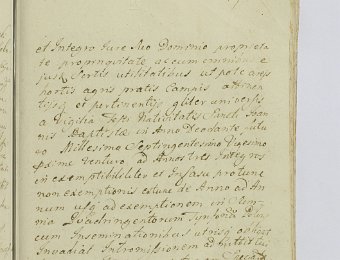 et Integro Jure suo Dominio proprieta
te propinquitate ac cum omnibus e
jusd. Sortis utilitatibus ut pote areis
hortis agris pratis Campis attinen
tijs et pertinentijs qliter
a Vigilia Festi Nativitatis Sancti Joan
nis Baptistæ in Anno Deo dante futu
ro Millesimo Septingentesimo Vigesimo
primo venturo, ad Annos tres Integros
inexemptibiliter et In casu protunc
non exemptionis exturc de Anno ad An
num usq ad exemptionem in
ma Quadringentorum
cum Inseminationibus utrisq
Invadiat Intromissionem ad